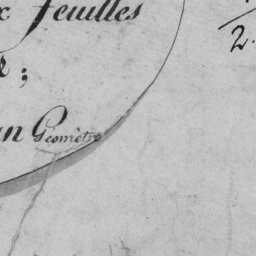 x feuilles
2.
e;
an Geomètre